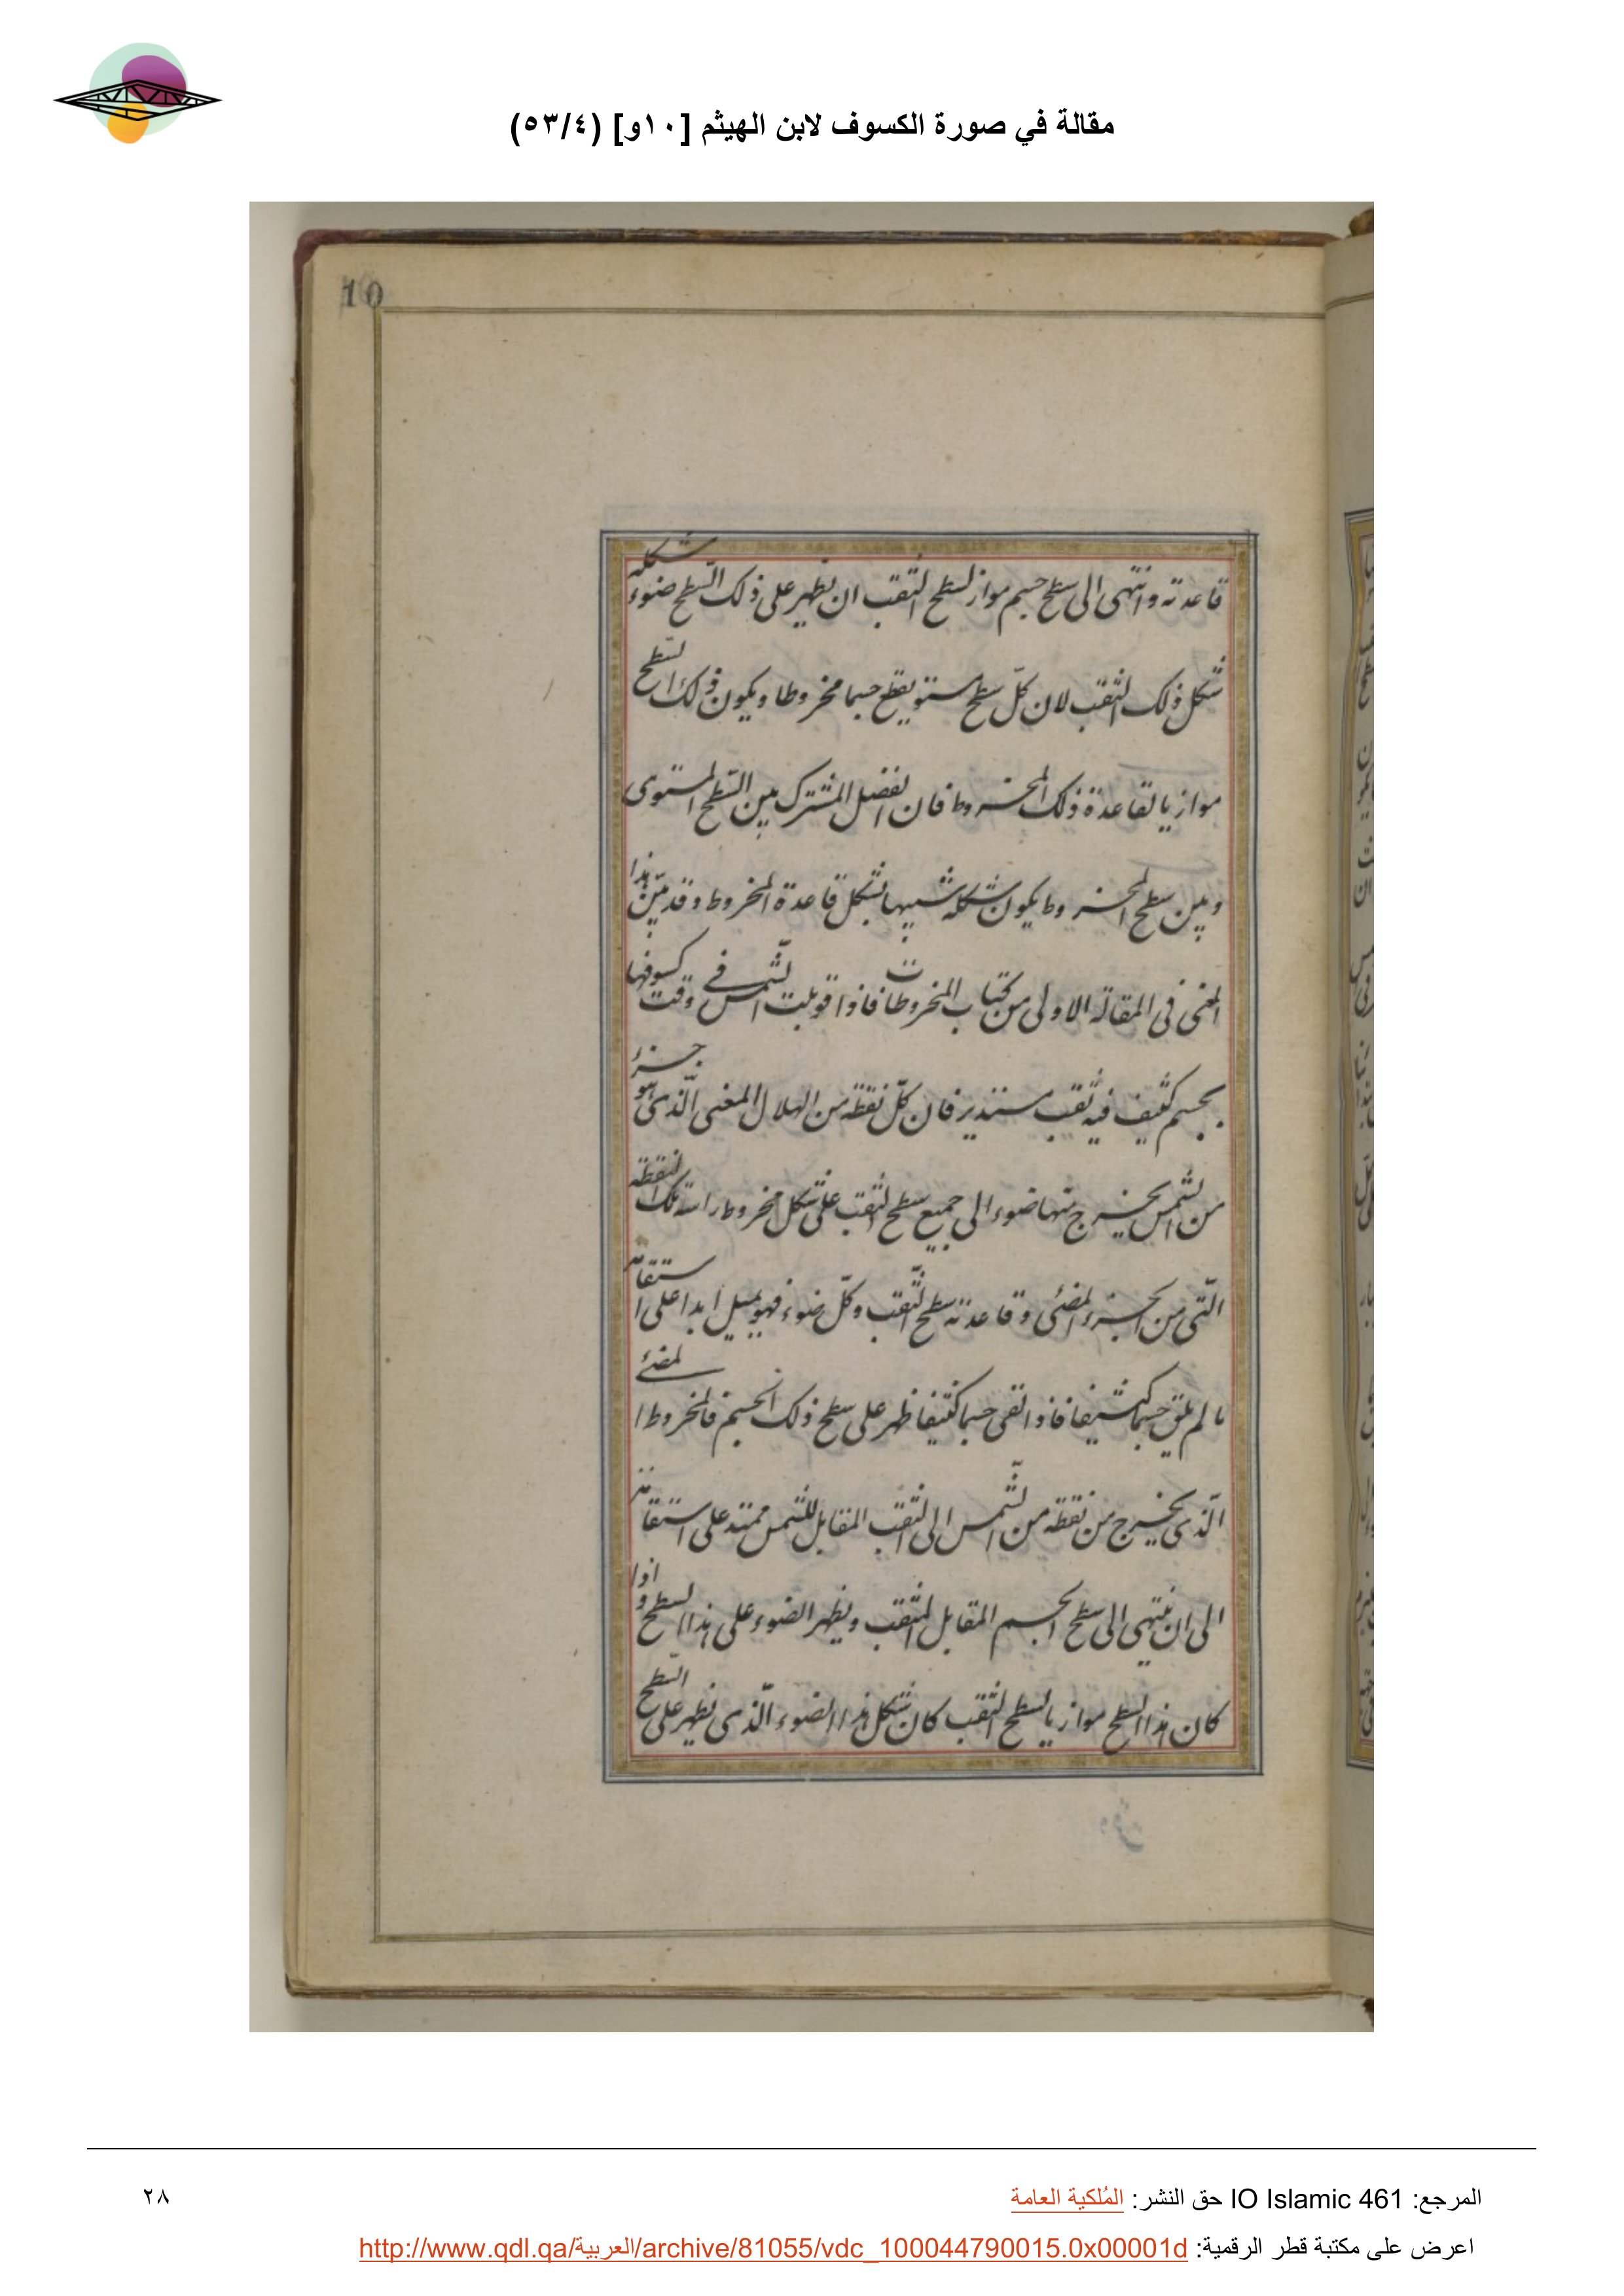 مقالة في صورة الكسوف لابن الهيثم [١٠و] (٥٣/٤)
10
قاعدته وانتهى الى سطح جسم مواز لسطح الثقب ان يظهر على ذلك السّطح ضوء شكله
شكل ذلك الثقب لان كلّ سطح مستو يقطع جسما مخروطا ويكون ذلك السّطح
موازيا لقاعدة ذلك المخروط فان الفضل المشترك بين السّطح المستوى
وبين سطح المخروط يكون شكله شبيها بشكل قاعدة المخروط وقد تبيّن هذا
المعنى فى المقالة الاولى من كتاب المخروطات فاذا قوبلت الشّمس فى وقت كسوفها
بجسم كثيف فيه ثقب مستدير فان كلّ نقطة من الهلال المغنى الّذى هو جزء
من الشمس يخرج منها ضوء الى جميع سطح الثقب على شكل مخروط راسه تلك النقطة
الّتى من الجزء المضئى وقاعدته سطح الثّقب وكلّ ضوء فهو يميل ابدا على استقامة
ما لم يلق جسما كثيفا فاذا لقى جسما كثيفا ظهر على سطح ذلك الجسم فالمخروط المضئ
الّذى يخرج من نقطة من الشّمس الى الثقب المقابل للشمس ممتد على استقامة
الى ان ينتهى الى سطح الجسم المقابل للثقب ويظهر الضوء على هذا السطح و اذا
كان هذا السطح موازيا لسطح الثقب كان شكل هذا الضوء الّذى يظهر على السّطح
المرجع: IO Islamic 461 حق النشر: المُلكية العامة
٢٨
اعرض على مكتبة قطر الرقمية: http://www.qdl.qa/العربية/archive/81055/vdc_100044790015.0x00001d